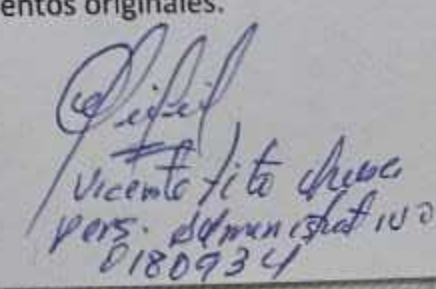 entos originales.
Vicente Tito
pers. Administrativo
0180934